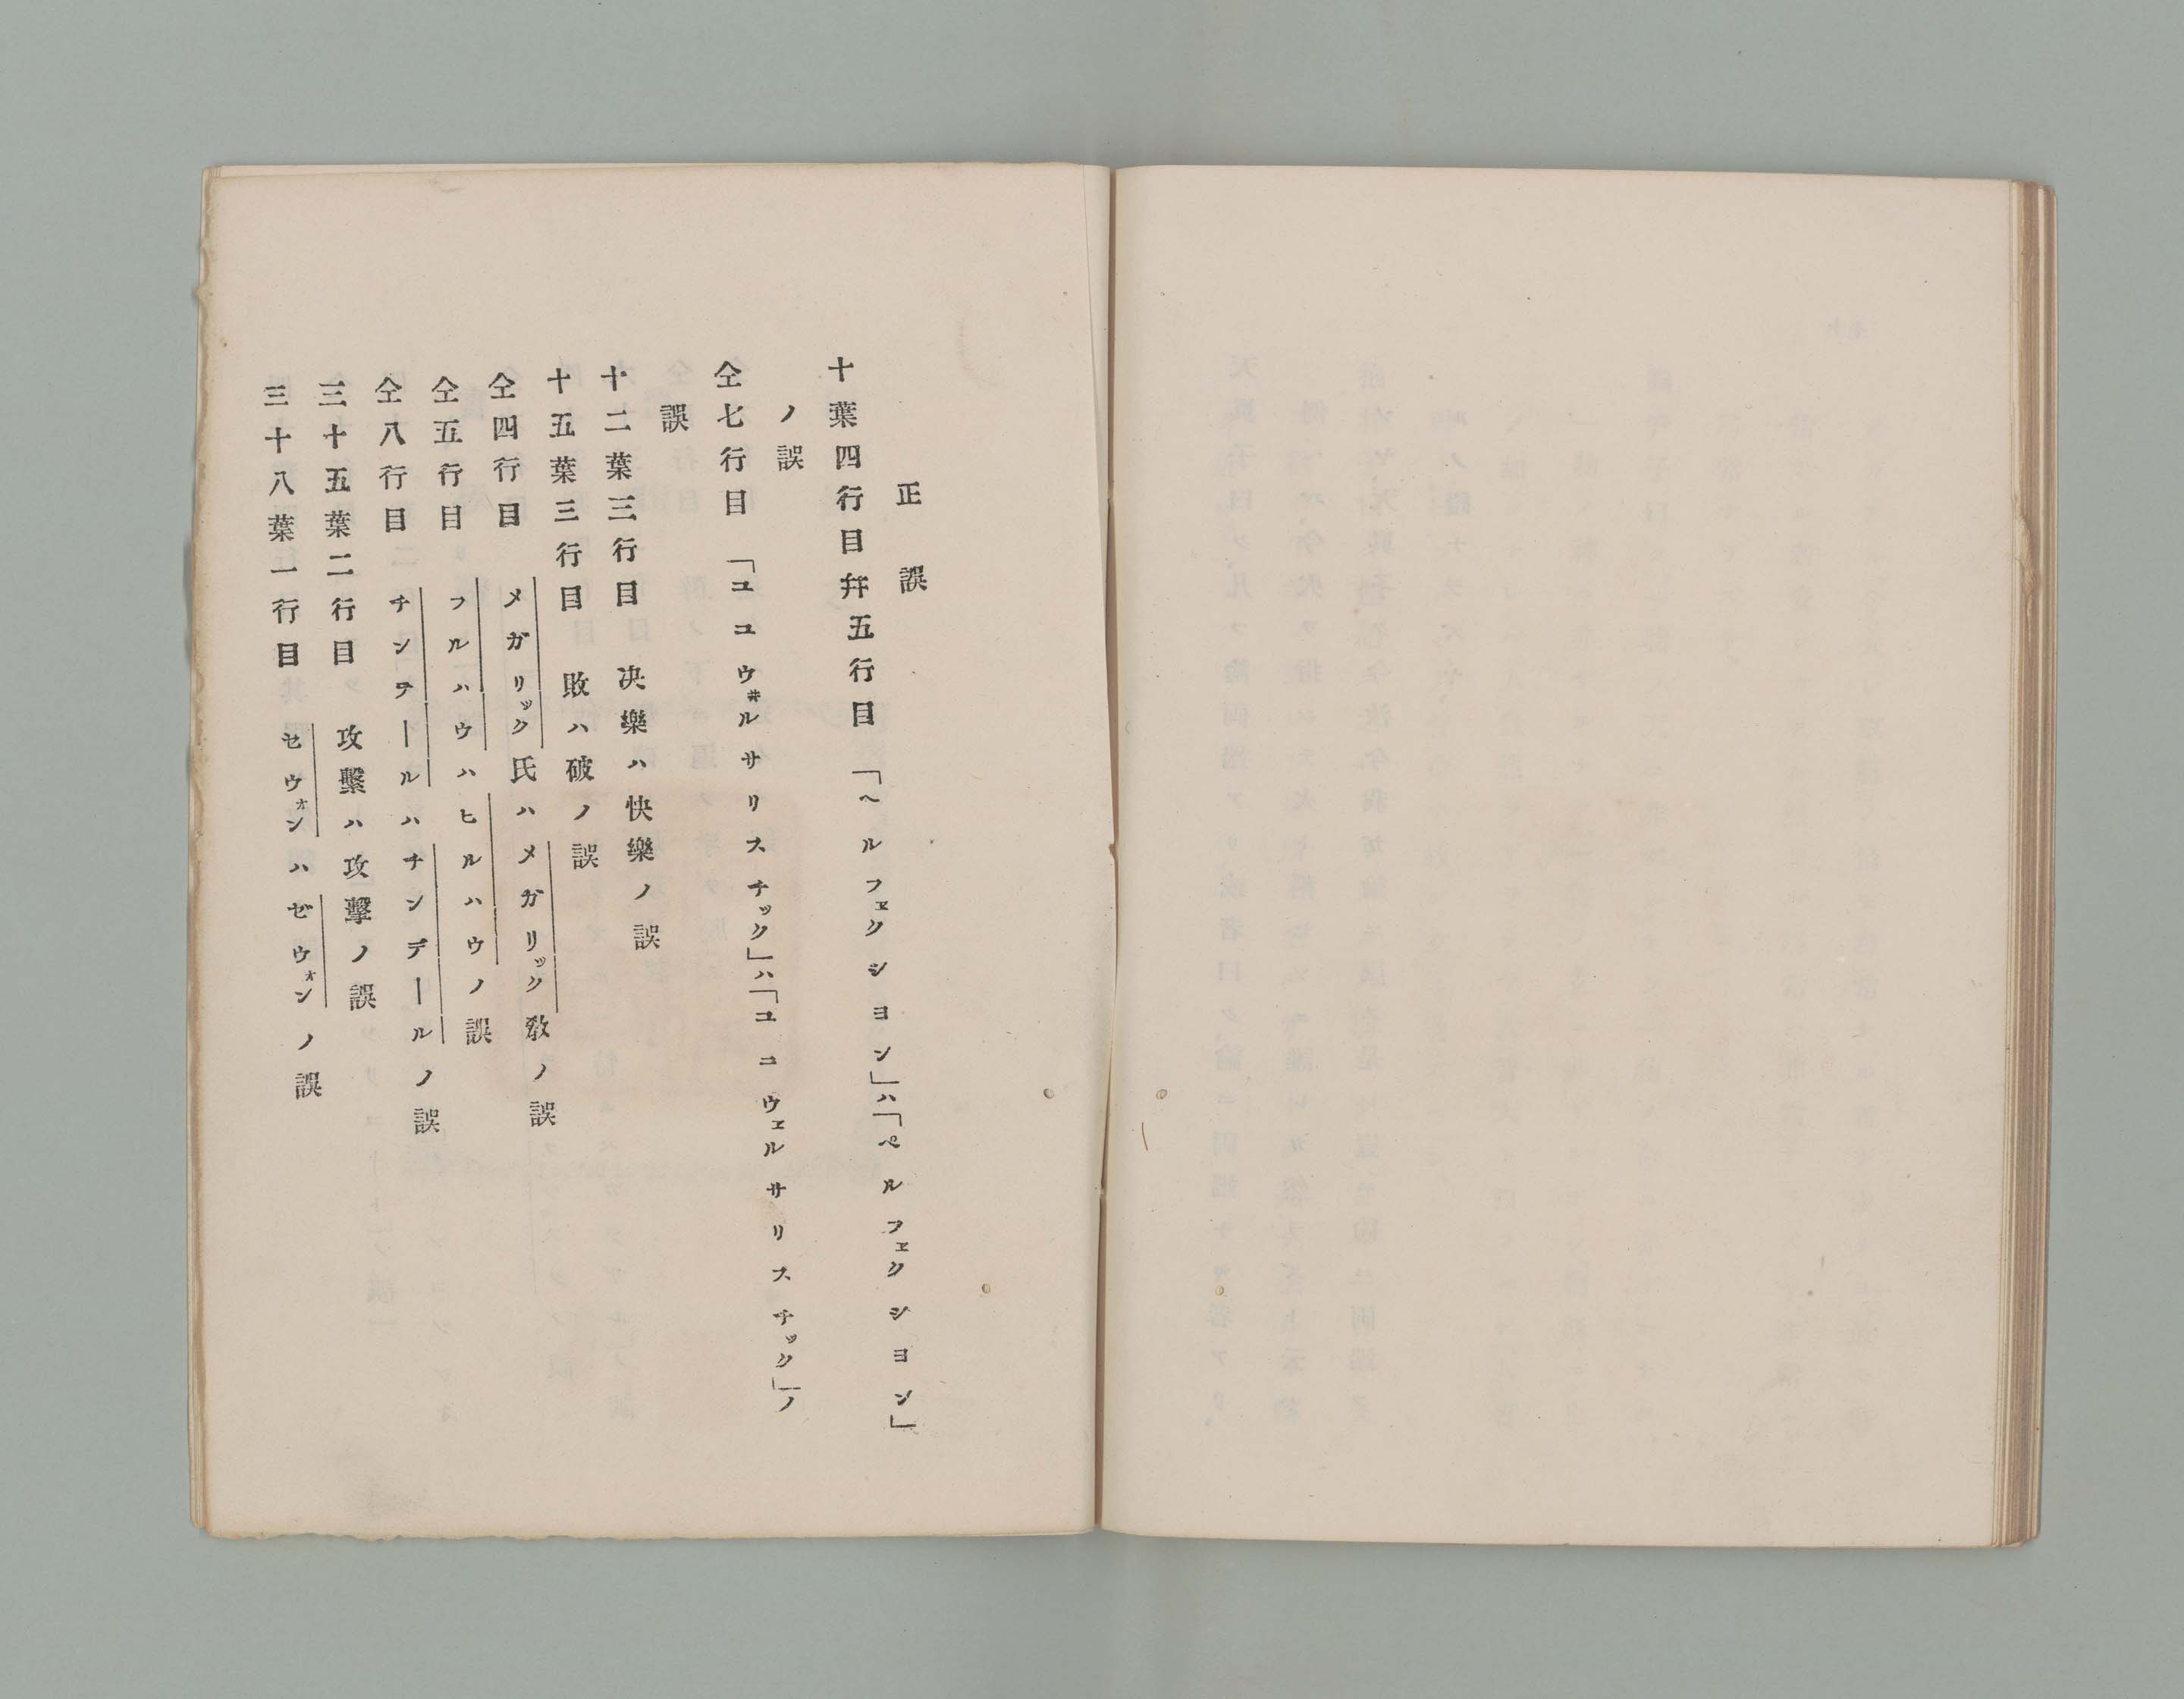 正誤
十葉四行目幷五行目 「ヘルフェクシヨン」ハ「ペルフェクシヨン」
ノ誤
仝七行目 「ユコウ井ルサリスチック」ハ「ユニウェルサリスチック」ノ
誤
十二葉三行目 决樂ハ快樂ノ誤
十五葉三行目 敗ハ破ノ誤
仝四行目 メガリック氏ハメガリック敎ノ誤
仝五行目 フルハウハヒルハウノ誤
仝八行目 チンテールハチンデールノ誤
三十五葉二行目 攻繫ハ攻擊ノ誤
三十八葉一行目 セウォンハゼウォンノ誤